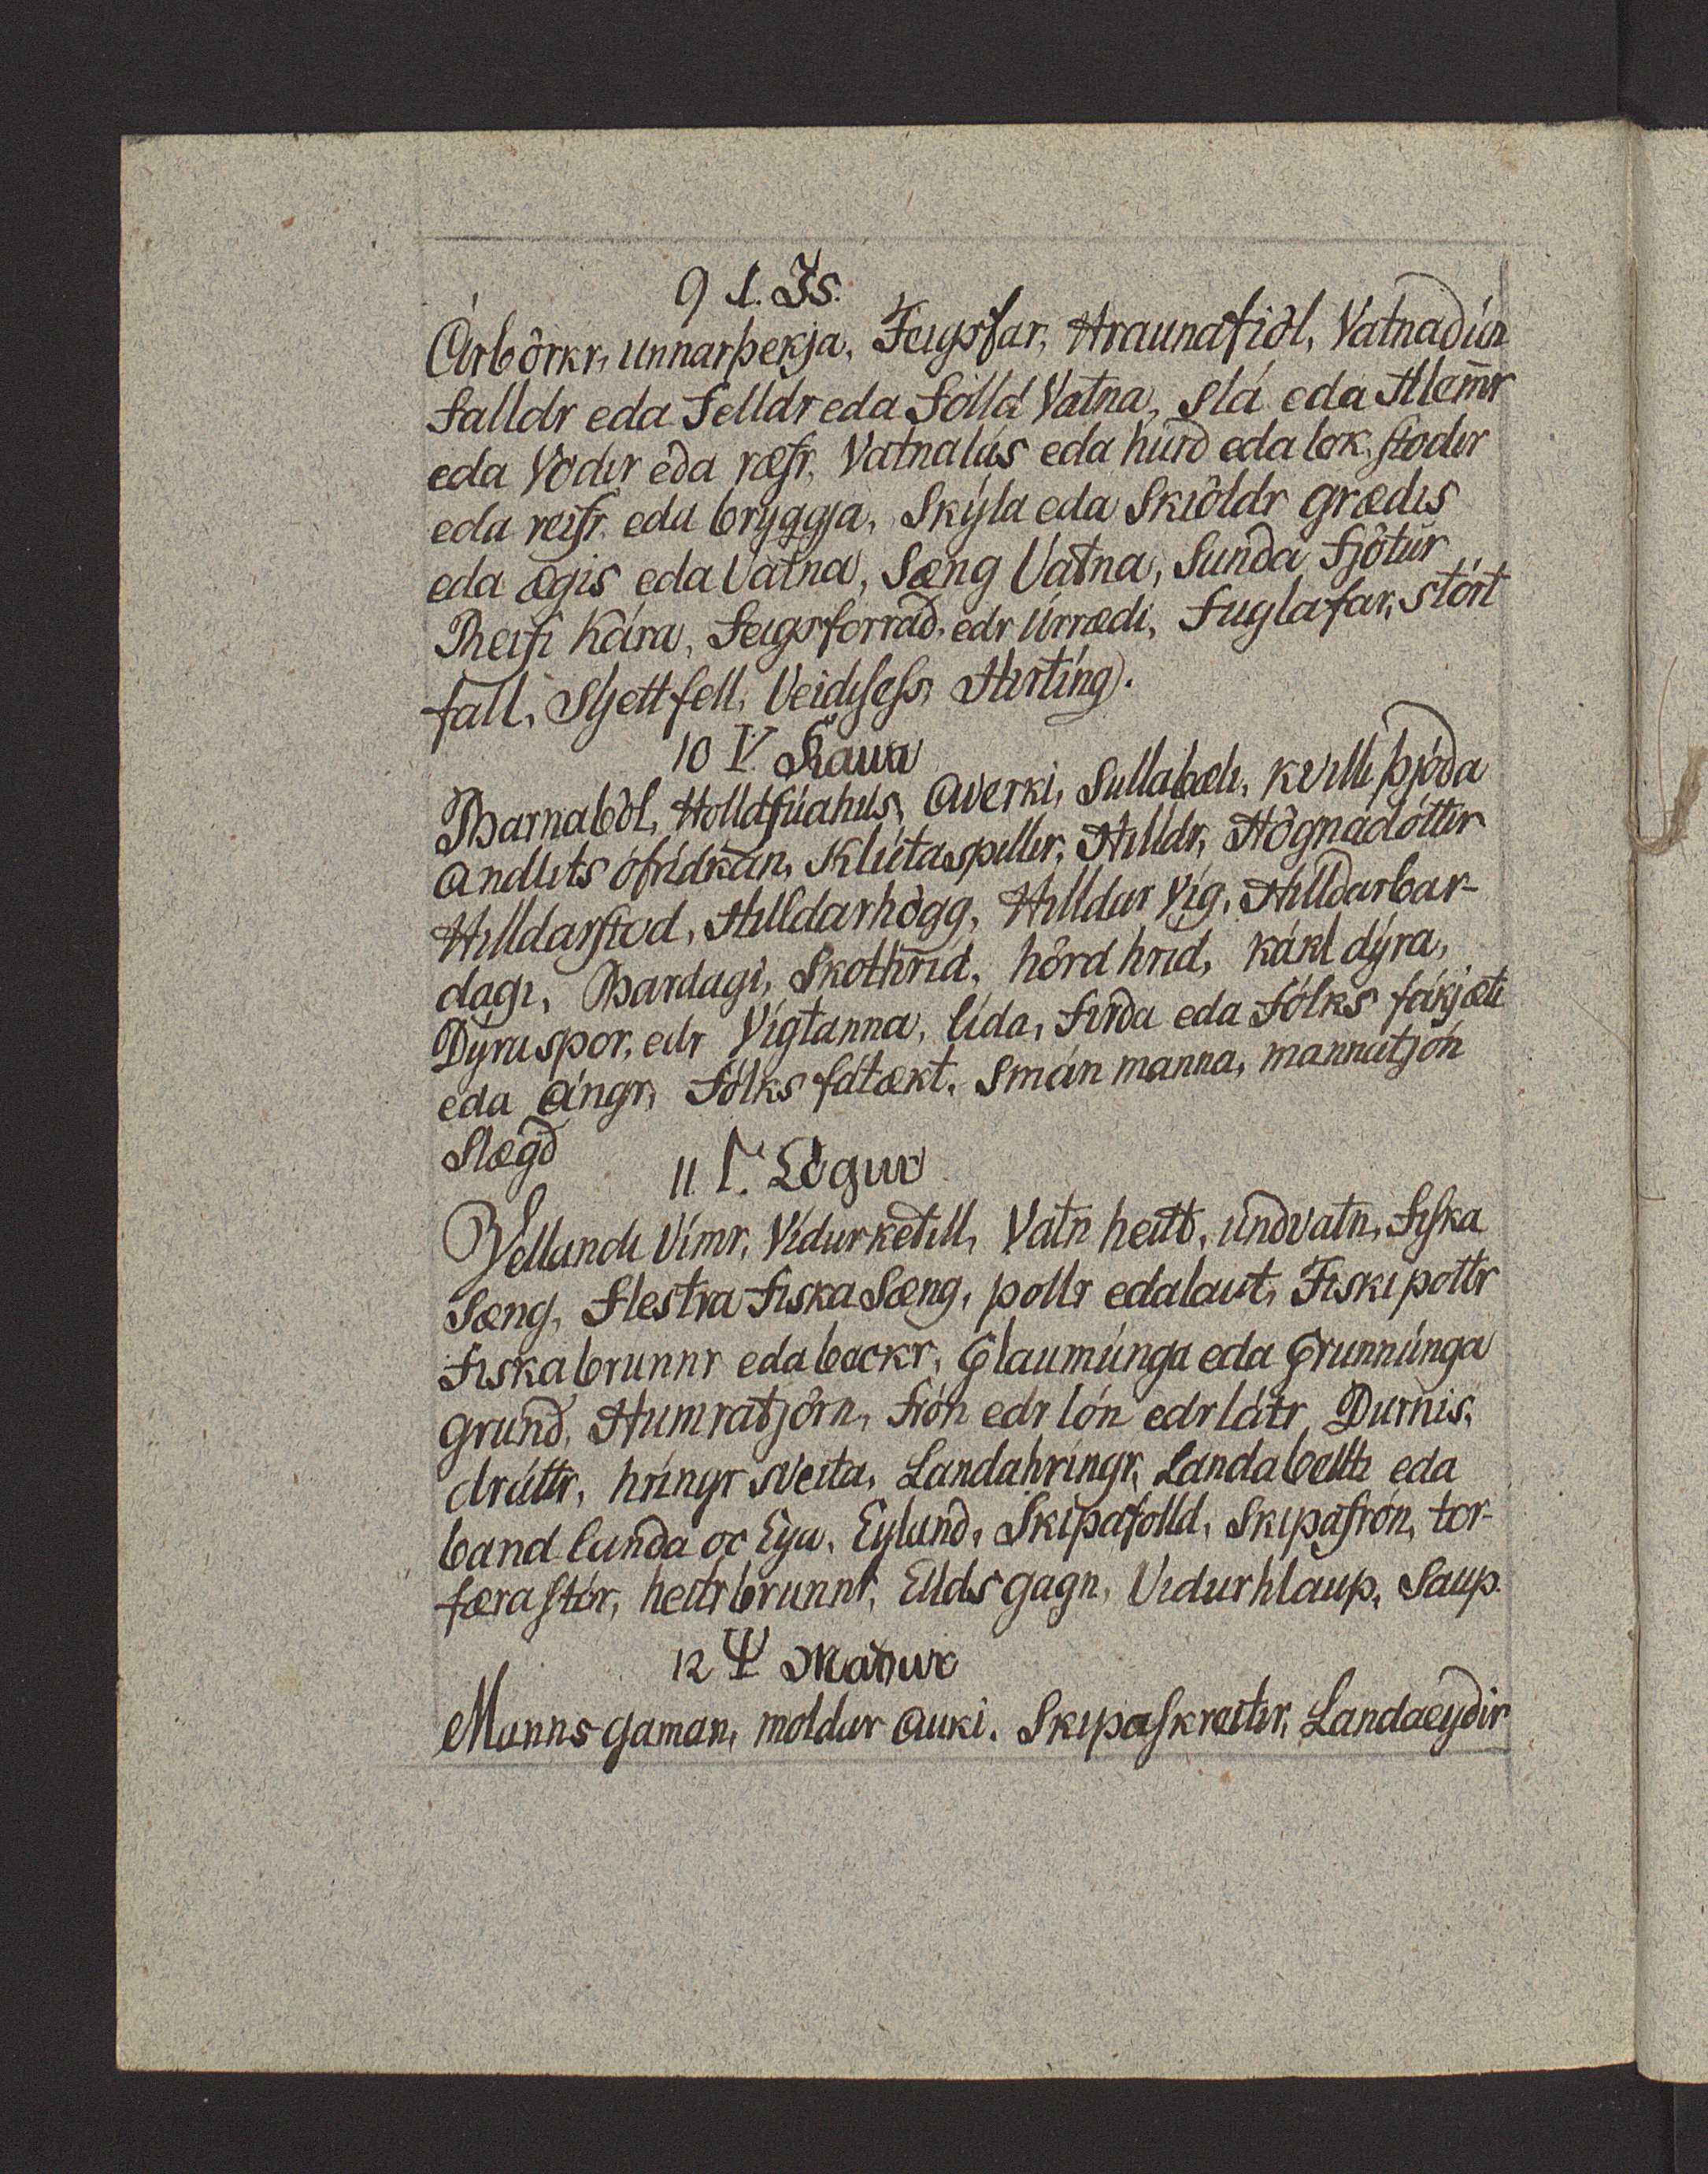 9 I. Is.
Árbörkr, unnarþekja, Feigsfar, Hraunafiöl, Vatnadún
falldr eda Felldr eda Fölld Vatna, slá eda Hlem̄r
eda Vodir eda ræfr, Vatnalás eda hurd eda lok, stodir
eda reifr eda bryggja, Skýla eda Skiöldr grædis
eda ægis eda Vatna, Sæng Vatna, Sunda fjötur
Reifi Kára, Feigsforrad, edr úrrædi, Fuglafar, stórt
fall, Sljettfell, Veidisess, Hirting.
10 V. Kaun
Barnaböl, Holldfúahús, Averki, Sullabæli, kvilli þjóda
Andlits ófrídkan, Klútaspillir, Hilldr, Högnadóttir
Hilldarstod, Hilldarhögg, Hilldar Víg, Hilldarbar-
dagi, Bardagi, Skothríd, hörd hríd, kákl dýra,
Dýraspor, edr Vígtanna, lída, firda eda Fólks fákjæti
eda ángr, Fólks fátækt, Smán manna, mannatjón
Slægd
11 Γ. Lögur
Vellandi Vímr, Vídurketill, Vatn heitt, undvatn, Fiska
Sæng, Flestra Fiska Sæng, pollr eda laut, Fiski pottr
Fiskabrunnr eda backr, Glaumúnga eda Grunnúnga
grund, Humratjörn, frón edr lón edr látr Durnis,
dráttr, hríngr sveita, Landahringr, Landabellti eda
band landa oc Eya, Eylund, Skipafolld, Skipafrón, tor-
færa stór, heitrbrunnr, Elldsgagn, Vidurhlaup, Saup.
12 Ψ Madur
Manns gaman, moldar auki. Skipaskreitir, Landaeydir